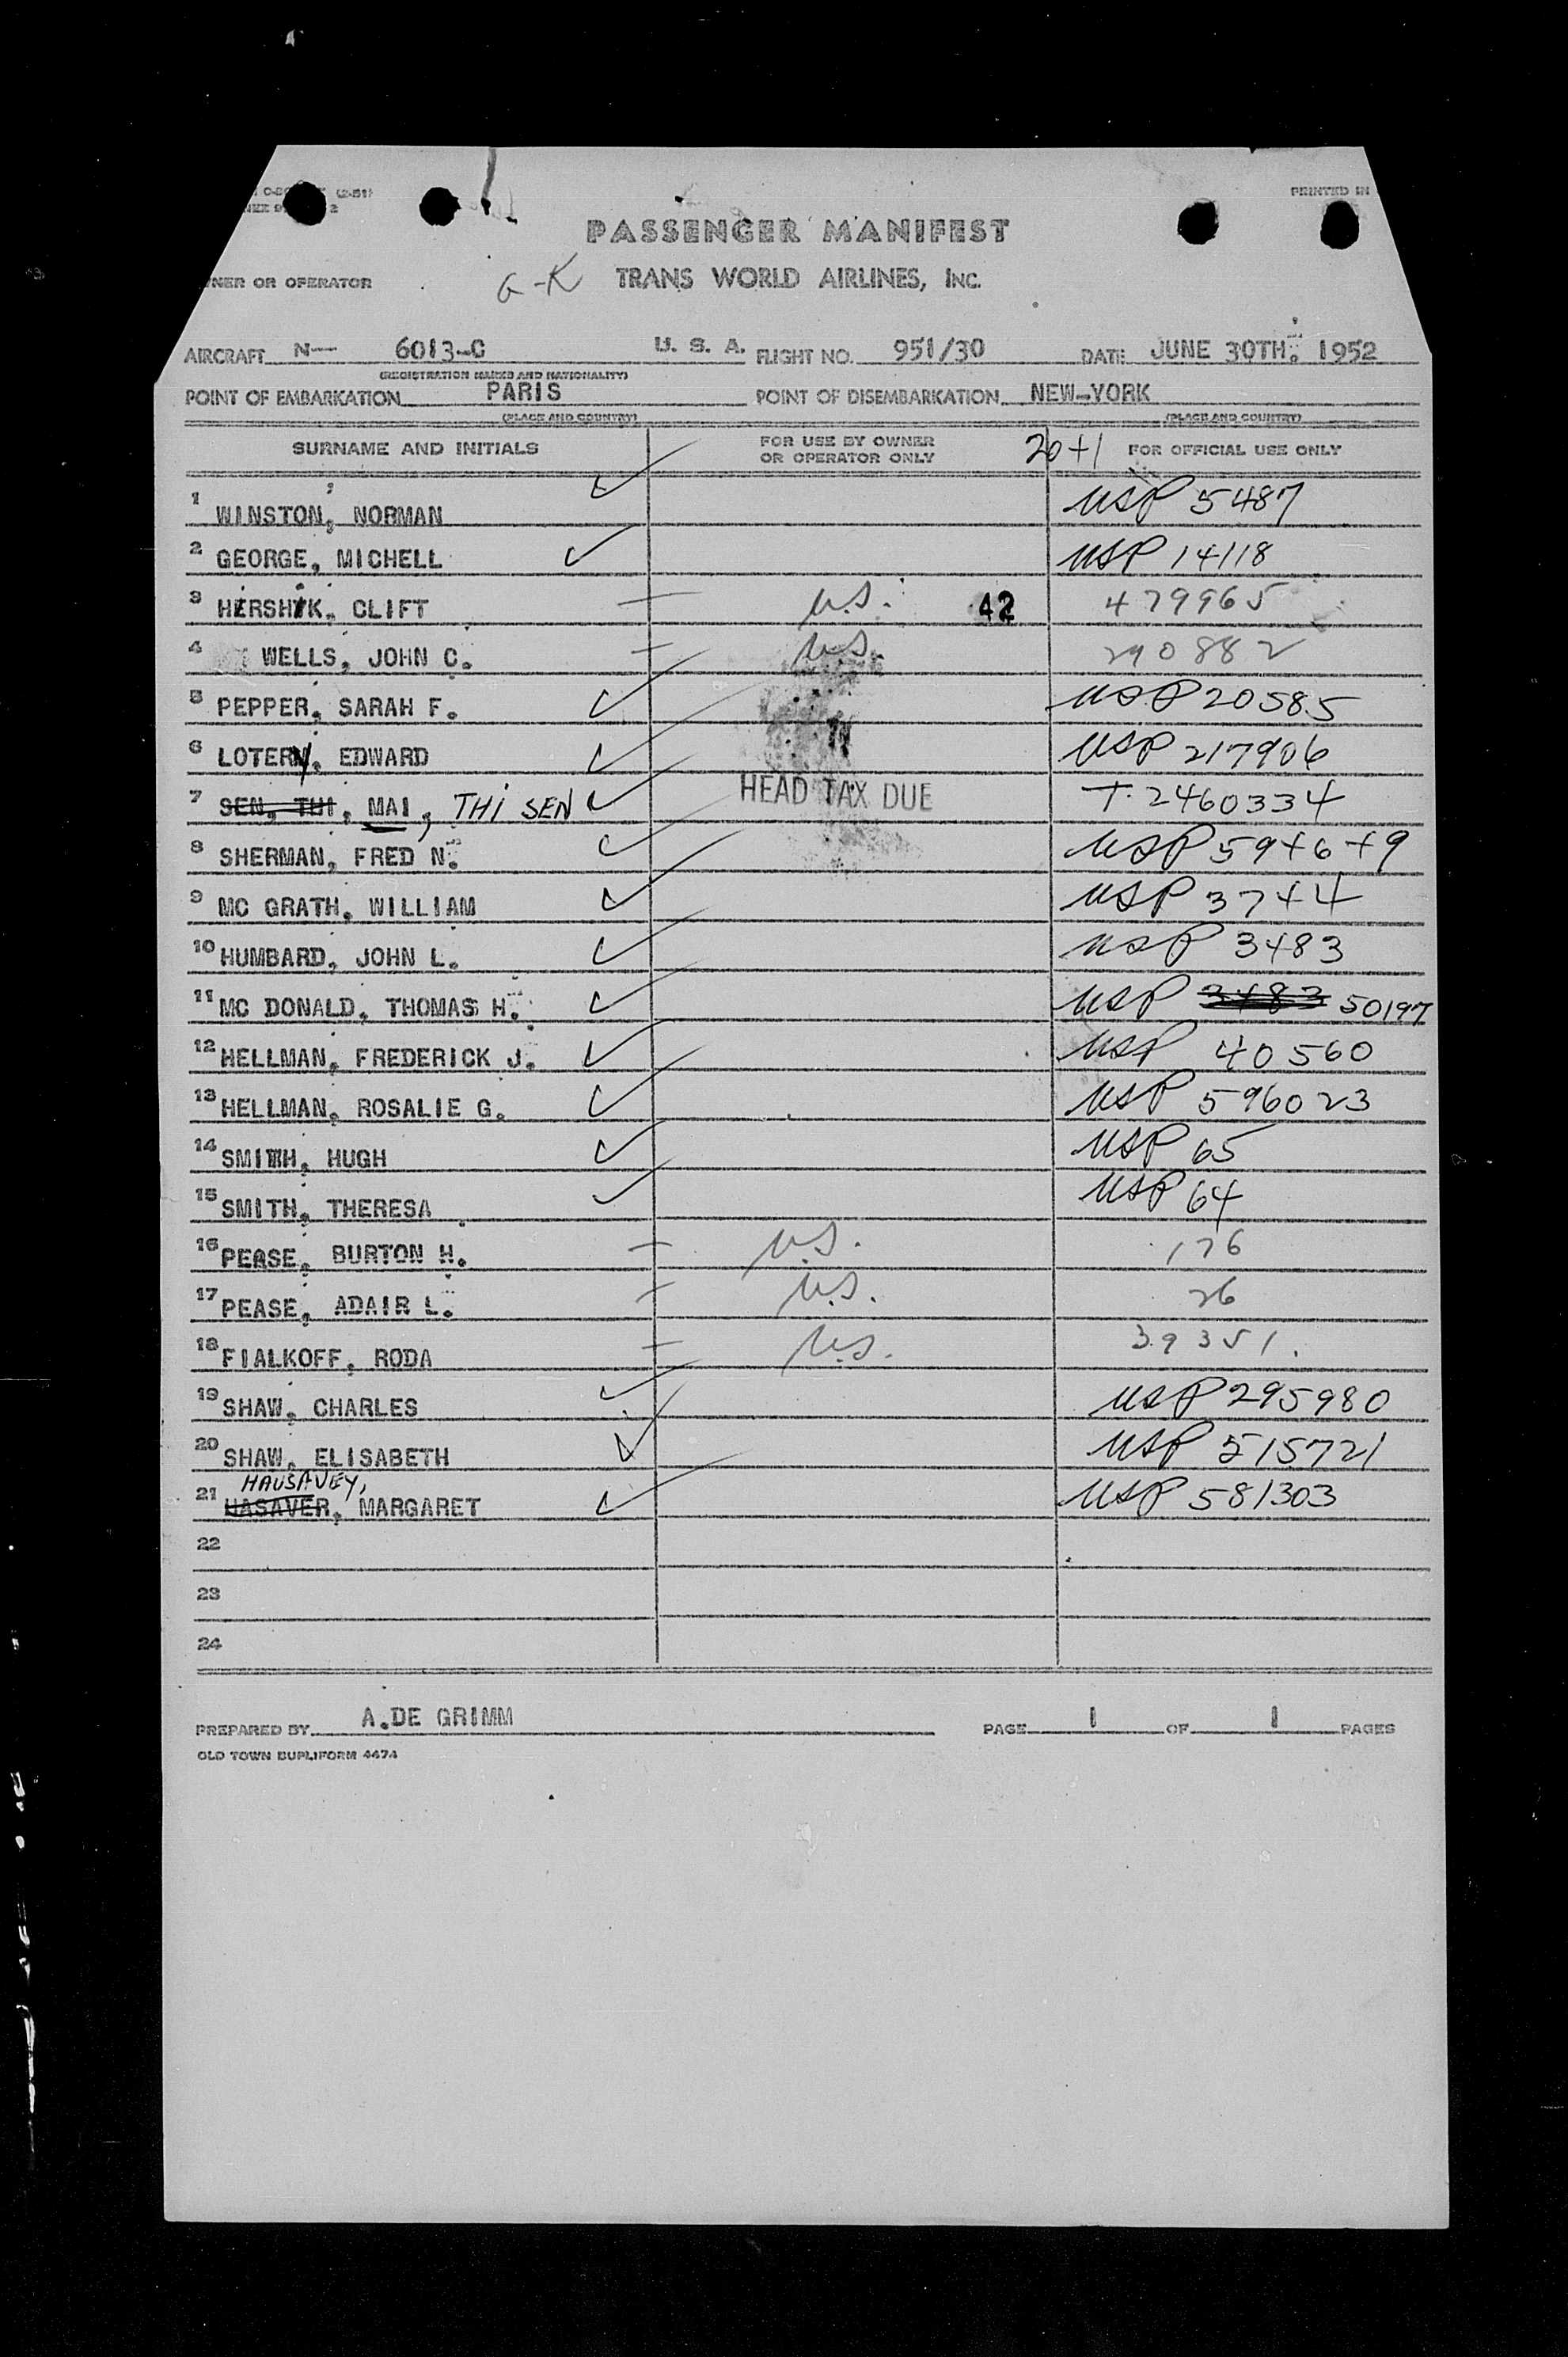 (2-51)
PRINTED IN
PASSENGER MANIFEST
OWNER OR OPERATOR G-K TRANS WORLD AIRLINES, INC.
AIRCRAFT N— 6013-C U. S. A. FLIGHT NO. 951/30 DATE JUNE 30TH. 1952
(REGISTRATION MARKS AND NATIONALITY)
POINT OF EMBARKATION PARIS POINT OF DISEMBARKATION NEW-YORK
(PLACE AND COUNTRY) (PLACE AND COUNTRY)
SURNAME AND INITIALS FOR USE BY OWNER OR OPERATOR ONLY 20+1 FOR OFFICIAL USE ONLY
1 WINSTON, NORMAN USP 5487
2 GEORGE, MICHELL USP 14118
3 HERSHIK, CLIFT u.s. 42 479965
4 WELLS, JOHN C. u.s. 290882
5 PEPPER, SARAH F. USP 20585
6 LOTERY, EDWARD USP 217906
7 SEN, THI, MAI, THI SEN HEAD TAX DUE T. 2460334
8 SHERMAN, FRED N. USP 594649
9 MC GRATH, WILLIAM USP 3744
10 HUMBARD, JOHN L. USP 3483
11 MC DONALD, THOMAS H. USP 3483 50197
12 HELLMAN, FREDERICK J. USP 40560
13 HELLMAN, ROSALIE G. USP 596023
14 SMITH, HUGH USP 65
15 SMITH, THERESA USP 64
16 PEASE, BURTON H. u.s. 176
17 PEASE, ADAIR L. u.s. 26
18 FIALKOFF, RODA u.s. 39351.
19 SHAW, CHARLES USP 295980
20 SHAW, ELISABETH USP 515721
HAUSAVEY,
21 HASAVER, MARGARET USP 581303
22
23
24
PREPARED BY A.DE GRIMM PAGE 1 OF 1 PAGES
OLD TOWN DUPLIFORM 4474